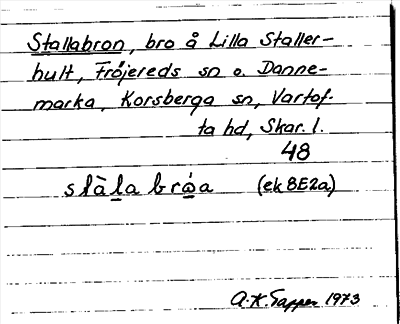 Stallabron, bro å Lilla Staller-
hult, Fröjereds sn o. Danne-
marka, Korsberga sn, Vartof-
ta hd, Skar. l.
48
slàla bróa (ek 8E2a)
A.K. Tapper 1973